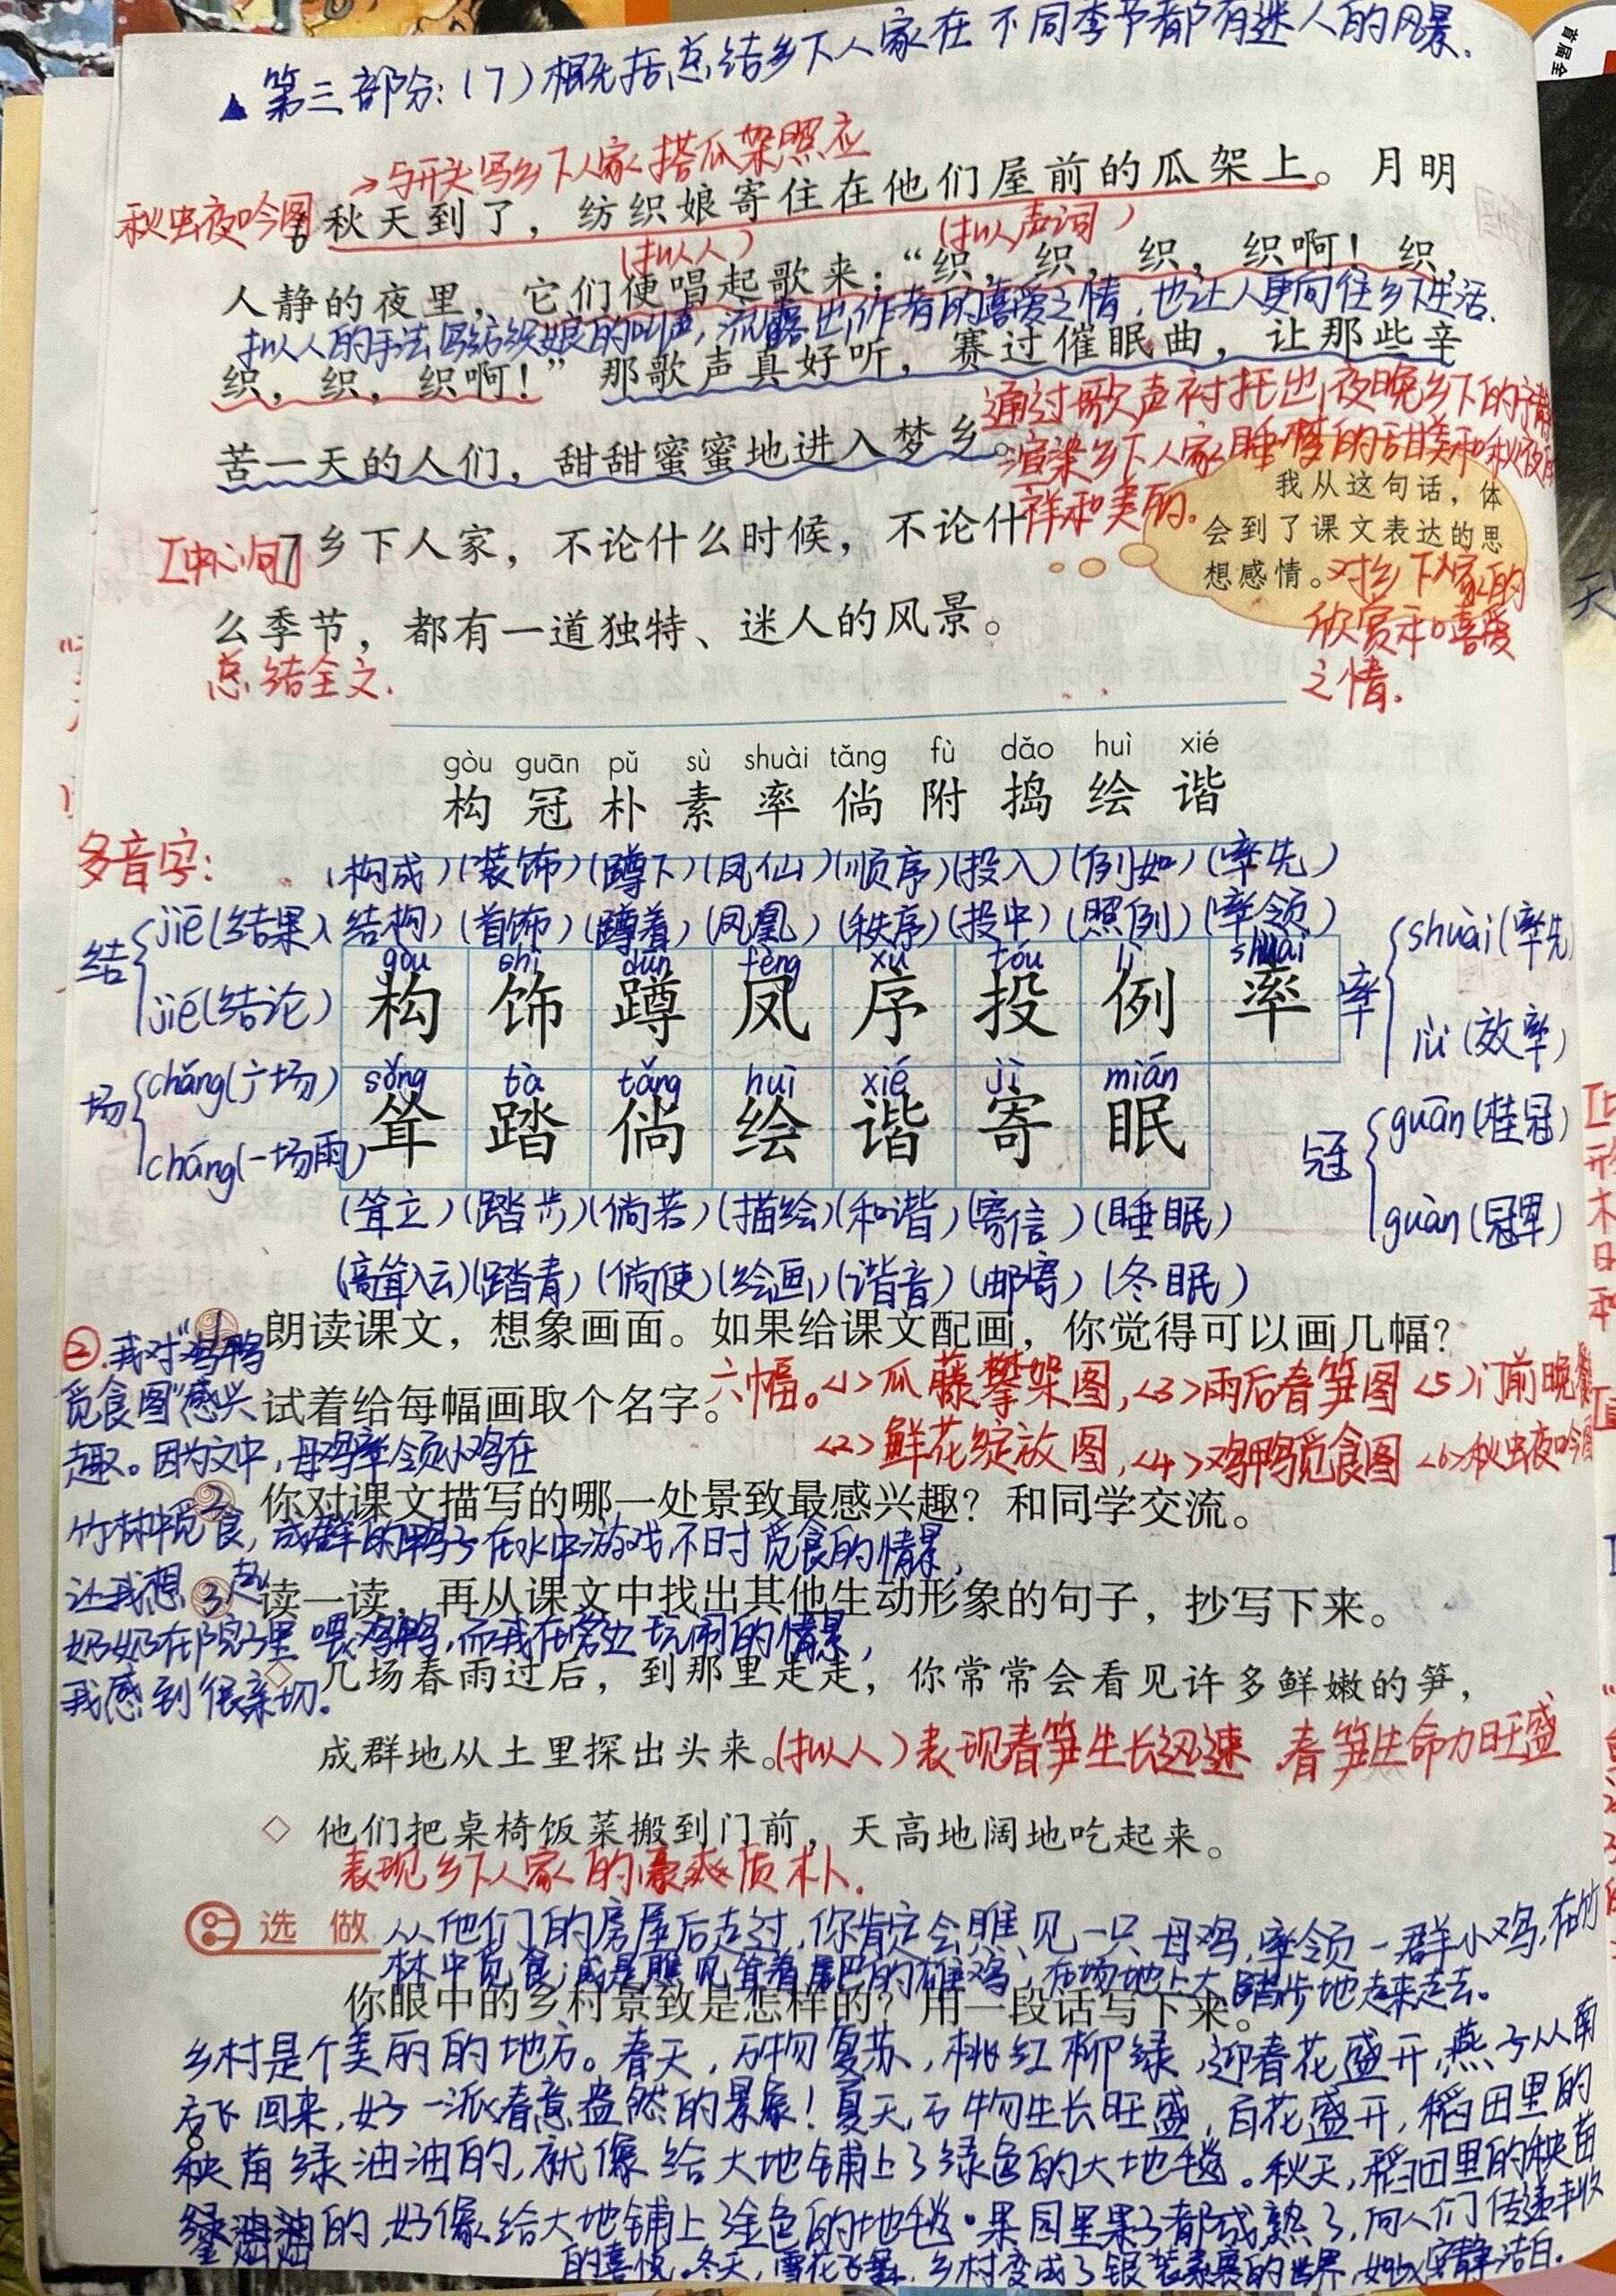 ▲ 第三部分：(7)概括总结乡下人家在不同季节都有迷人的风景.
→与开头写乡下人家搭瓜架照应
秋虫夜吟图
6 秋天到了，纺织娘寄住在他们屋前的瓜架上。月明
(拟人) (拟声词)
人静的夜里，它们便唱起歌来：“织，织，织，织啊！织，
拟人的手法写纺织娘的叫声,流露出作者的喜爱之情,也让人更向往乡下生活.
织，织，织啊！”那歌声真好听，赛过催眠曲，让那些辛
通过歌声衬托出夜晚乡下的宁静
苦一天的人们，甜甜蜜蜜地进入梦乡。
渲染乡下人家睡梦的甜美和秋夜的
祥和美好。
我从这句话，体
会到了课文表达的思
想感情。
对乡下人家的
欣赏和喜爱
之情.
[中心句]
7 乡下人家，不论什么时候，不论什
么季节，都有一道独特、迷人的风景。
总结全文.
gòu guān pǔ sù shuài tǎng fù dǎo huì xié
构 冠 朴 素 率 倘 附 捣 绘 谐
多音字:
(构成)(装饰)(蹲下)(凤仙)(顺序)(投入)(例如)(率先)
(结构)(首饰)(蹲着)(凤凰)(秩序)(投中)(照例)(率领)
结 jiē(结果)
jié(结论)
场 chǎng(广场)
cháng(一场雨)
gòu shì dūn fèng xù tóu lì shuài
构 饰 蹲 凤 序 投 例 率
sǒng tà tǎng huì xié jì mián
耸 踏 倘 绘 谐 寄 眠
率 shuài(率先)
lǜ(效率)
冠 guān(桂冠)
guàn(冠军)
(耸立)(踏步)(倘若)(描绘)(和谐)(寄信)(睡眠)
(高耸入云)(踏青)(倘使)(绘画)(谐音)(邮寄)(冬眠)
1 朗读课文，想象画面。如果给课文配画，你觉得可以画几幅？
试着给每幅画取个名字。
六幅。<1>瓜藤攀架图,<3>雨后春笋图 <5>门前晚餐
<2>鲜花绽放图,<4>鸡鸭觅食图 <6>秋虫夜吟图
2 你对课文描写的哪一处景致最感兴趣？和同学交流。
二.我对“鸡鸭
觅食图”感兴
趣。因为文中,母鸡率领小鸡在
竹林中觅食,成群的鸭子在水中游戏,不时觅食的情景,
让我想起
奶奶在院子里喂鸡鸭,而我在旁边玩闹的情景,
我感到很亲切.
3 读一读，再从课文中找出其他生动形象的句子，抄写下来。
◇ 几场春雨过后，到那里走走，你常常会看见许多鲜嫩的笋，
成群地从土里探出头来。
(拟人)表现春笋生长迅速 春笋生命力旺盛
◇ 他们把桌椅饭菜搬到门前，天高地阔地吃起来。
表现乡下人家的豪爽质朴.
选做
从他们的房屋后走过,你肯定会瞧见一只母鸡,率领一群小鸡,在竹
林中觅食;或是瞧见耸着尾巴的雄鸡,在场地上大踏步地走来走去。
你眼中的乡村景致是怎样的？用一段话写下来。
乡村是个美丽的地方。春天,万物复苏,桃红柳绿,迎春花盛开,燕子从南
方飞回来,好一派春意盎然的景象!夏天,万物生长旺盛,百花盛开,稻田里的
秧苗绿油油的,就像给大地铺上了绿色的大地毯。秋天,稻田里的秧苗
金灿灿的,好像给大地铺上了金色的地毯。果园里果子都成熟了,向人们传递丰收
的喜悦。冬天,雪花飞舞,乡村变成了银装素裹的世界,如此安静洁白.
首届全